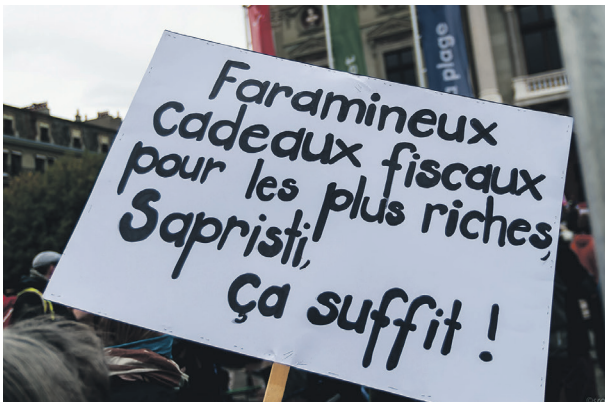 Faramineux
cadeaux fiscaux
pour les plus riches,
Sapristi,
ça suffit !
plage